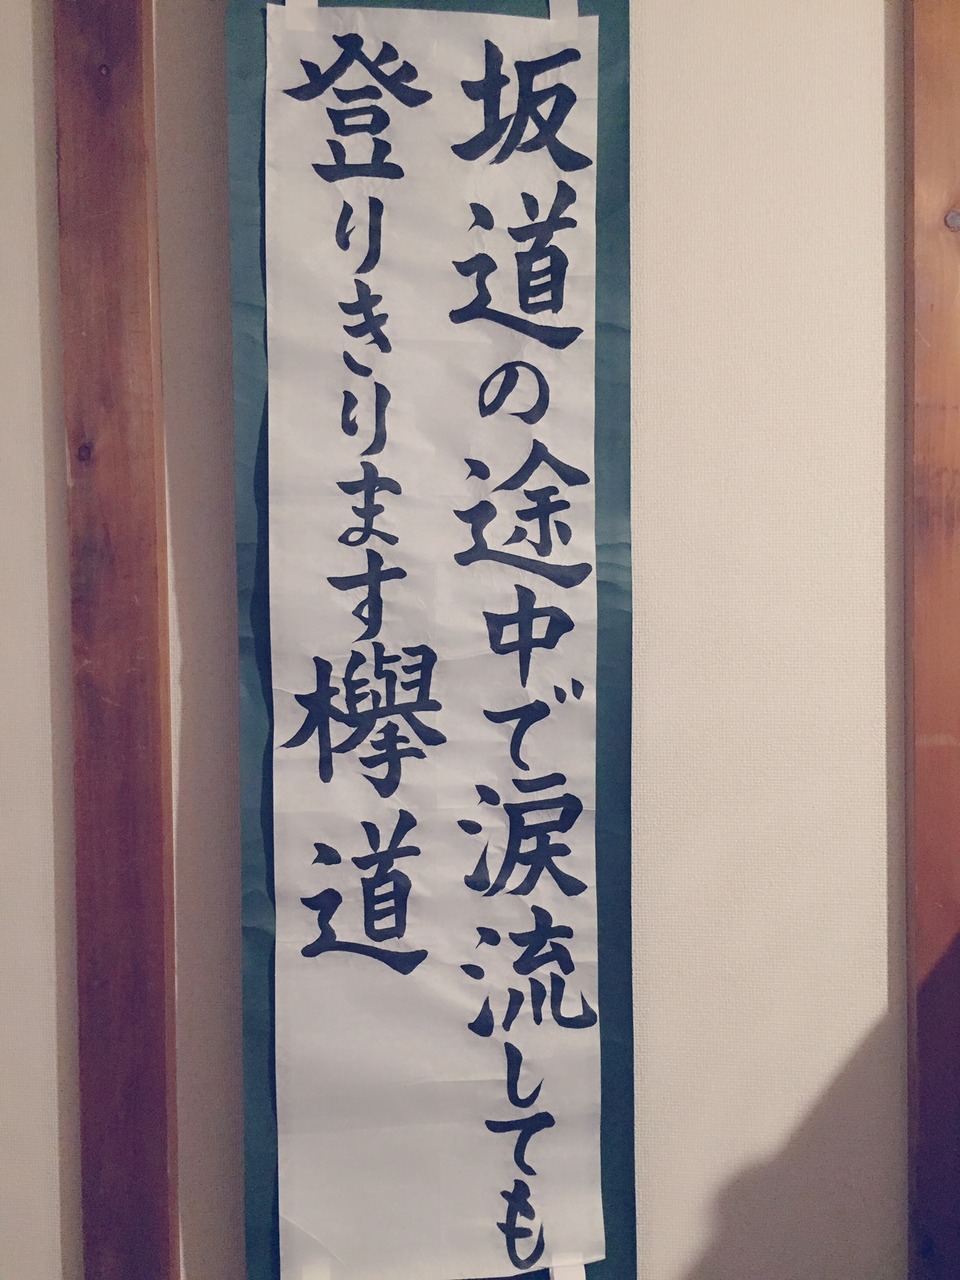 坂道の途中で涙流しても
登りきります欅道